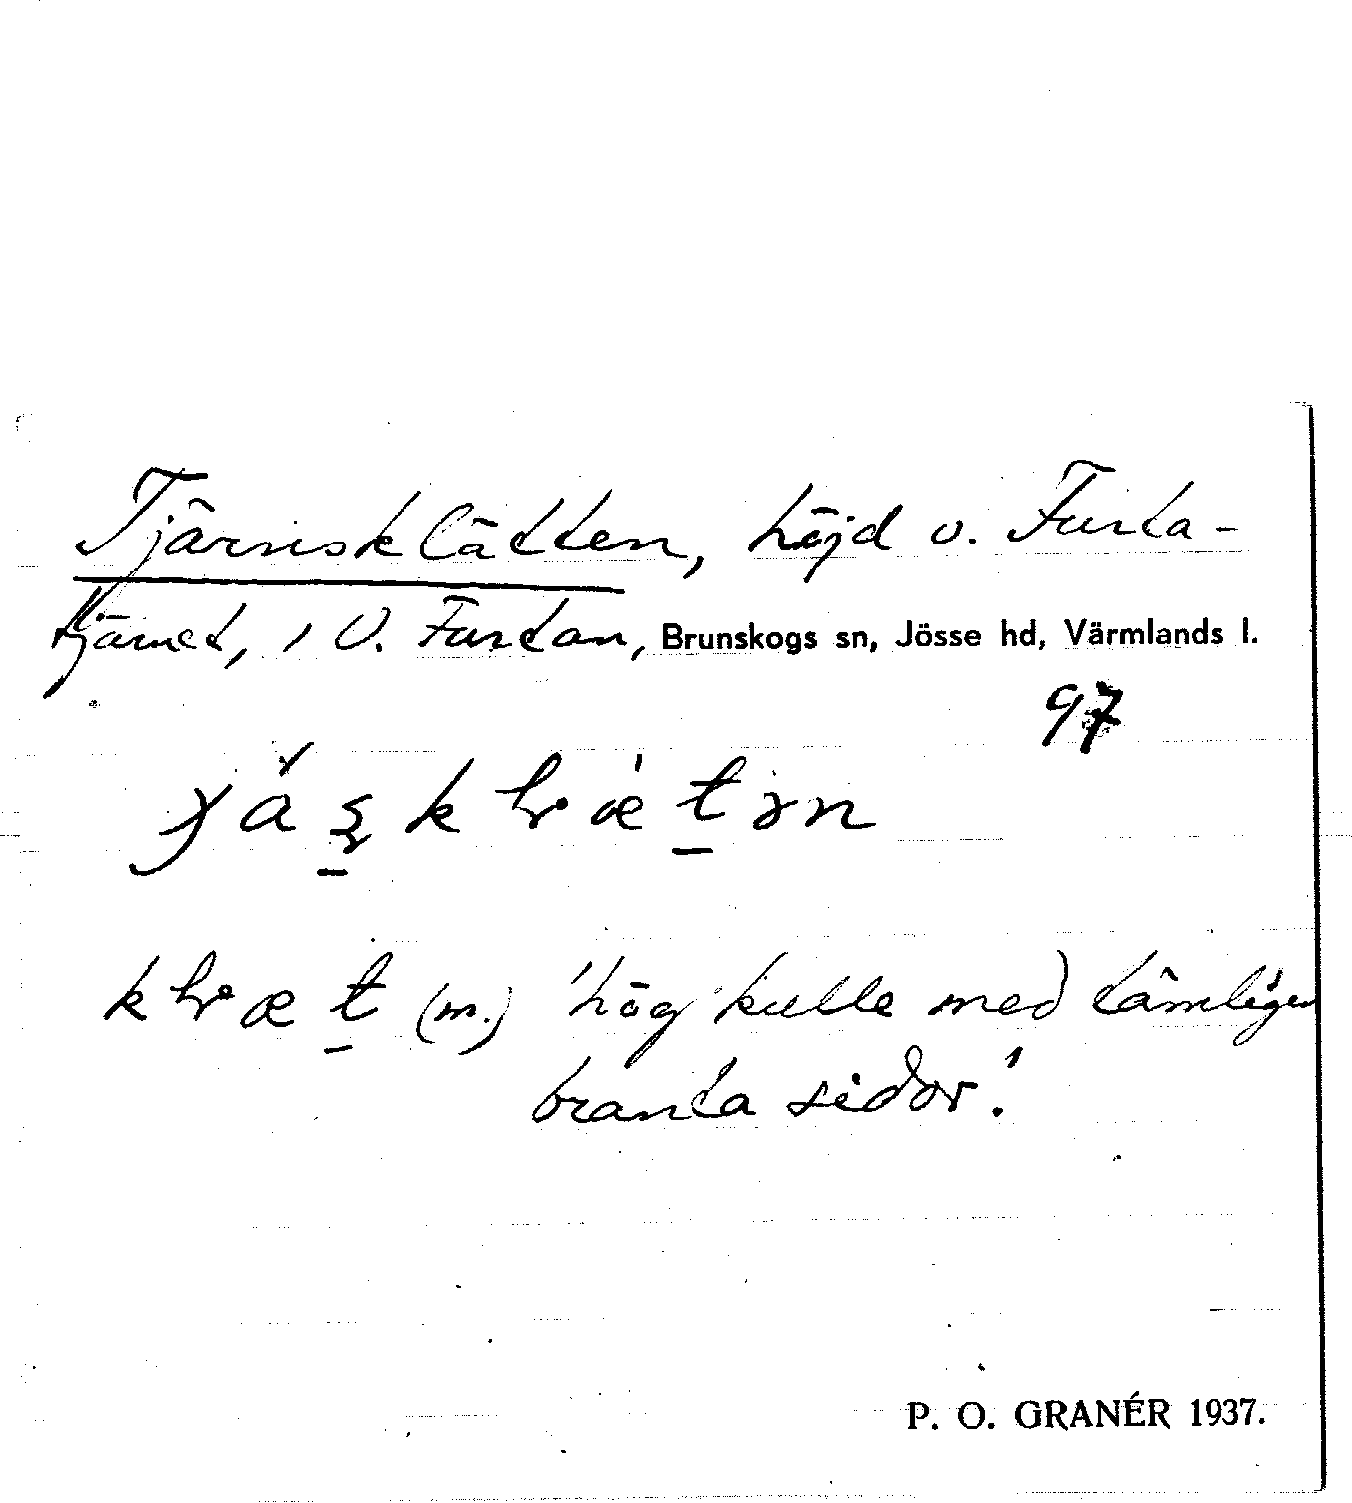 Tjärnsklätten, höjd v. Furta-
tjärnet, i V. Furtan, Brunskogs sn, Jösse hd, Värmlands l.
97
(m.) 'hög kulle med tämligen
branta sidor.'
P. O. GRANÉR 1937.